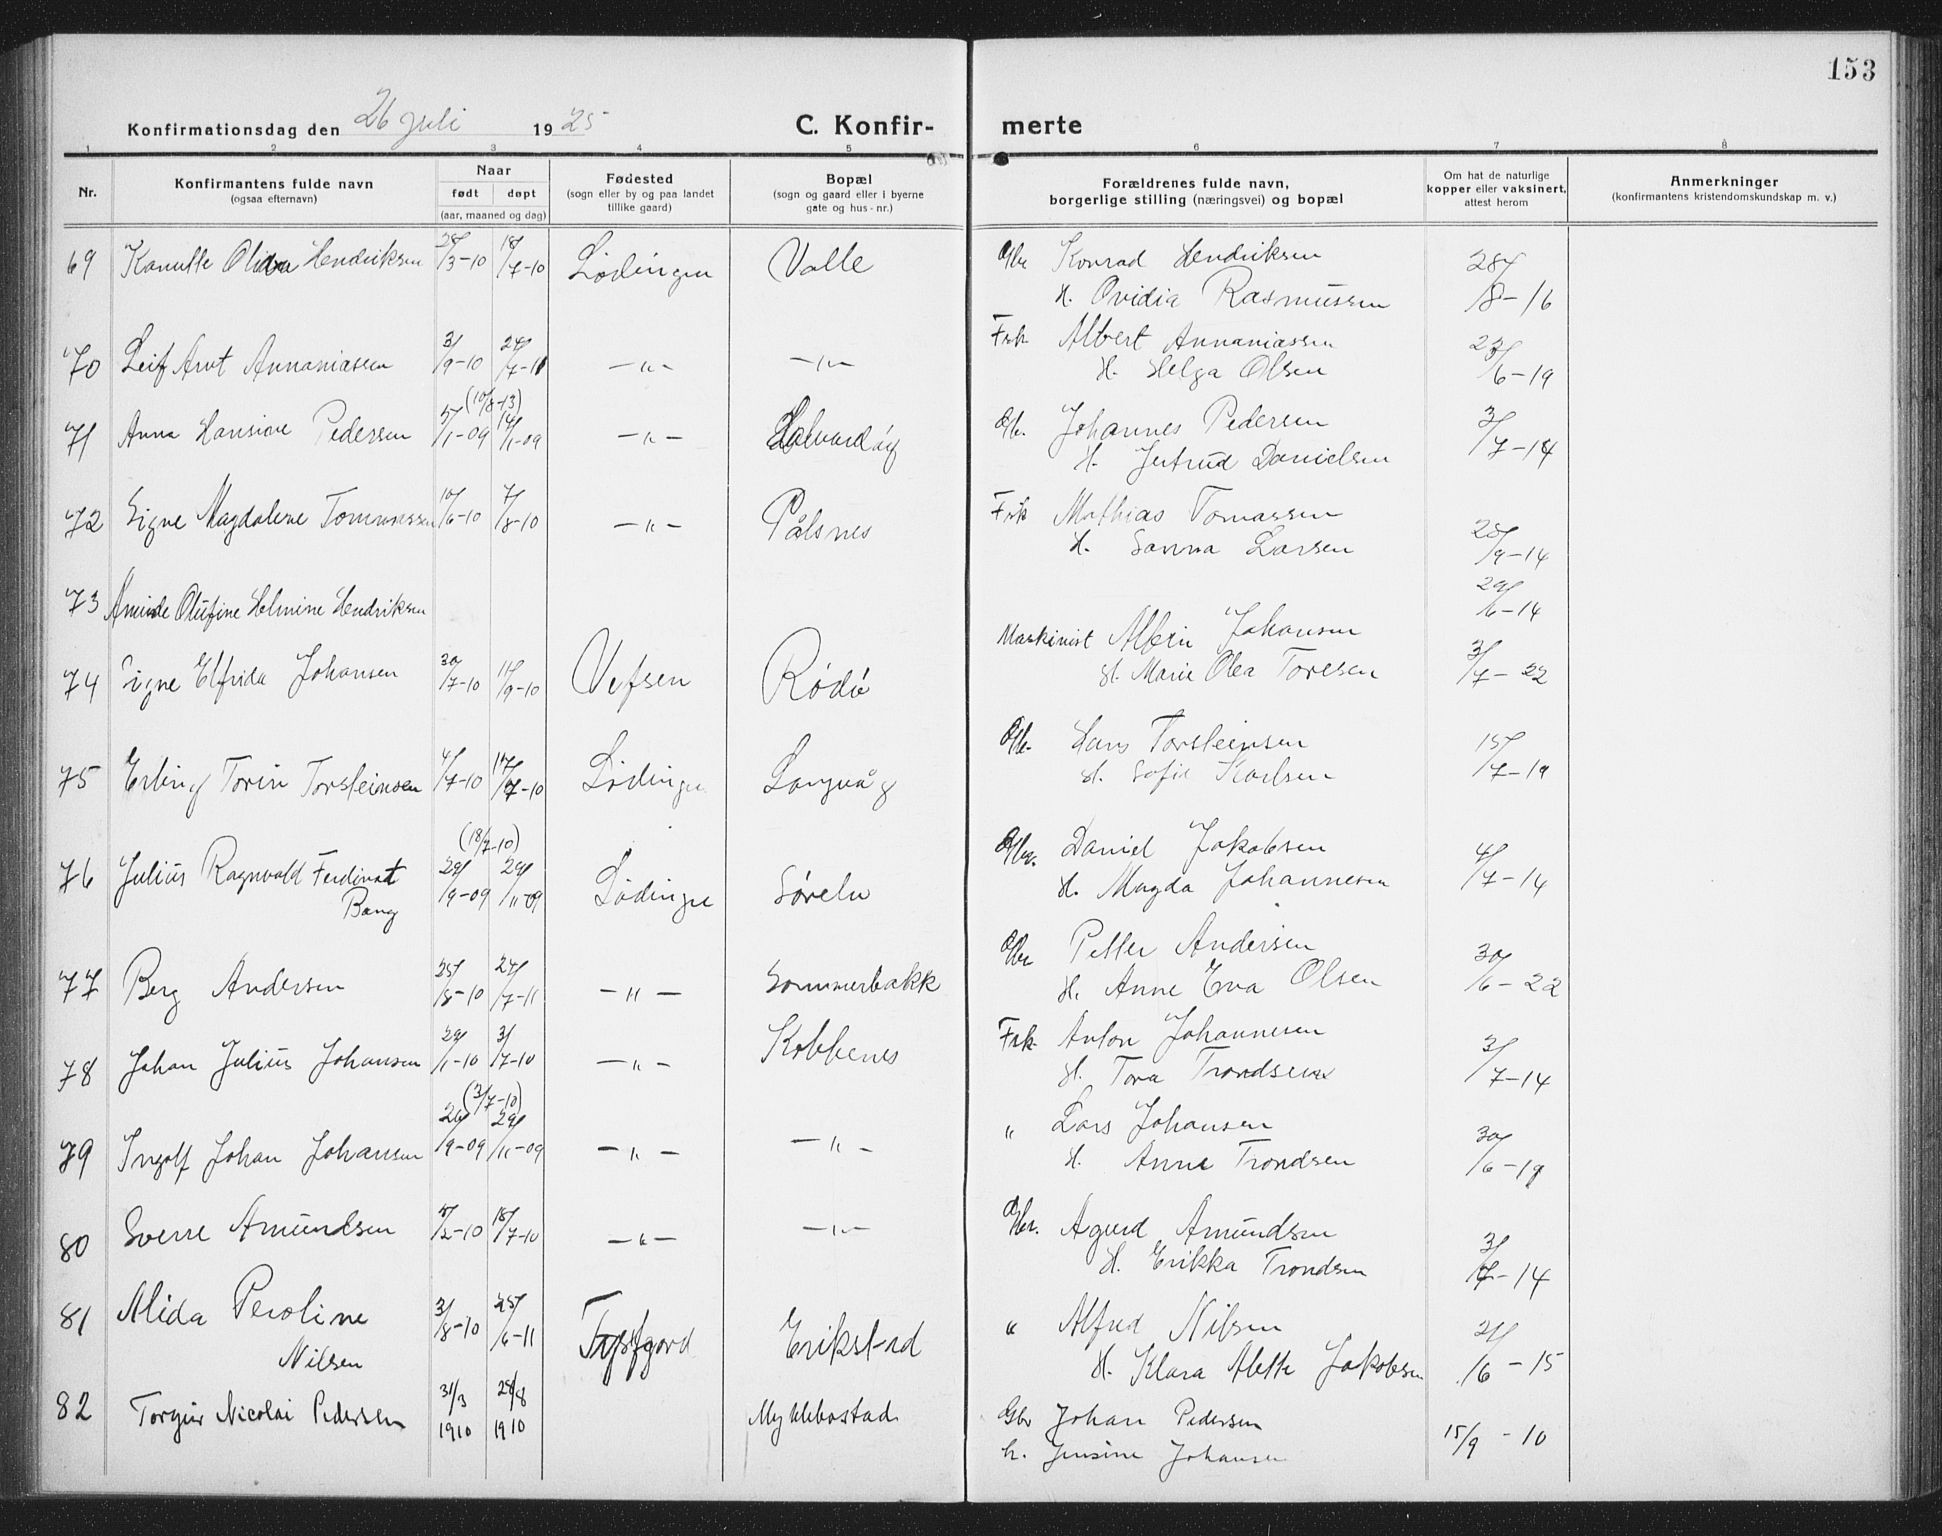 153
Konfirmationsdag den 26 juli 1925 C. Konfir- merte
1 2 3 4 5 6 7 8
Nr. Konfirmantens fulde navn (ogsaa efternavn) Naar født døpt (aar, maaned og dag) Fødested (sogn eller by og paa landet tillike gaard) Bopæl (sogn og gaard eller i byerne gate og hus-nr.) Forældrenes fulde navn, borgerlige stilling (næringsvei) og bopæl Om hat de naturlige kopper eller vaksinert, attest herom Anmerkninger (konfirmantens kristendomskundskap m. v.)
69 Hendriksen 28/3-10 18/7-10 Lødingen Valle Gbr Konrad Hendriksen 28/8-16
H. Ovidia Rasmussen
70 Leif Arnt Annaniassen 3/9-10 24/7-11 -"- -"- Fisk Albert Annaniassen 23/6-19
H. Helga Olsen
(10/8-13)
71 Anna Hansine Pedersen 5/1-09 14/1-09 -"- Gbr. Johannes Pedersen 3/7-14
H. Jertrud Danielsen
72 Signe Magdalene 10/6-10 7/8-10 -"- Pålsnes Fisk Mathias Tomassen 25/9-14
H. Sanna Larsen
73 Olufine Helmine Hendriksen 29/6-14
74 Signe Elfrida Johansen 30/7-10 11/9-10 Vefsen Rødø Maskinist Johansen 3/7-22
H. Marie Olea Toresen
75 Erling Torin Torsteinsen 4/7-10 17/7-10 Lødingen Langvåg Gbr. Hans Torsteinsen 15/7-19
H. Sofie Karlsen
(18/7-10)
76 Julius Ragnvald Ferdinat 29/9-09 29/11-09 Lødingen Gbr. Daniel Jakobsen 4/7-14
Bang H. Magda Johannesen
77 Berg Andersen 25/8-10 27/7-11 -"- Sommerbakk Gbr Petter Andersen 30/6-22
H. Anne Eva Olsen
78 Johan Julius Johansen 29/1-10 3/7-10 -"- Kobbenes Fisk Anton Johannesen 3/7-14
H. Tora Trondsen
(3/7-10)
79 Ingolf Johan Johansen 26/9-09 29/11-09 -"- -"- " Lars Johansen 30/6-19
H. Anne Trondsen
80 Sverre Amundsen 5/2-10 18/7-10 -"- -"- Gbr. Amundsen 3/7-14
H. Erikka Trondsen
81 Alida Peroline 3/8-10 25/6-11 Tysfjord Erikstad " Alfred Nilsen 21/6-15
Nilsen H. Klara Alette Jakobsen
82 Nicolai Pedersen 31/3 1910 28/8 1910 Myklebostad Gbr Johan Pedersen 15/9-10
h. Jensine Johansen